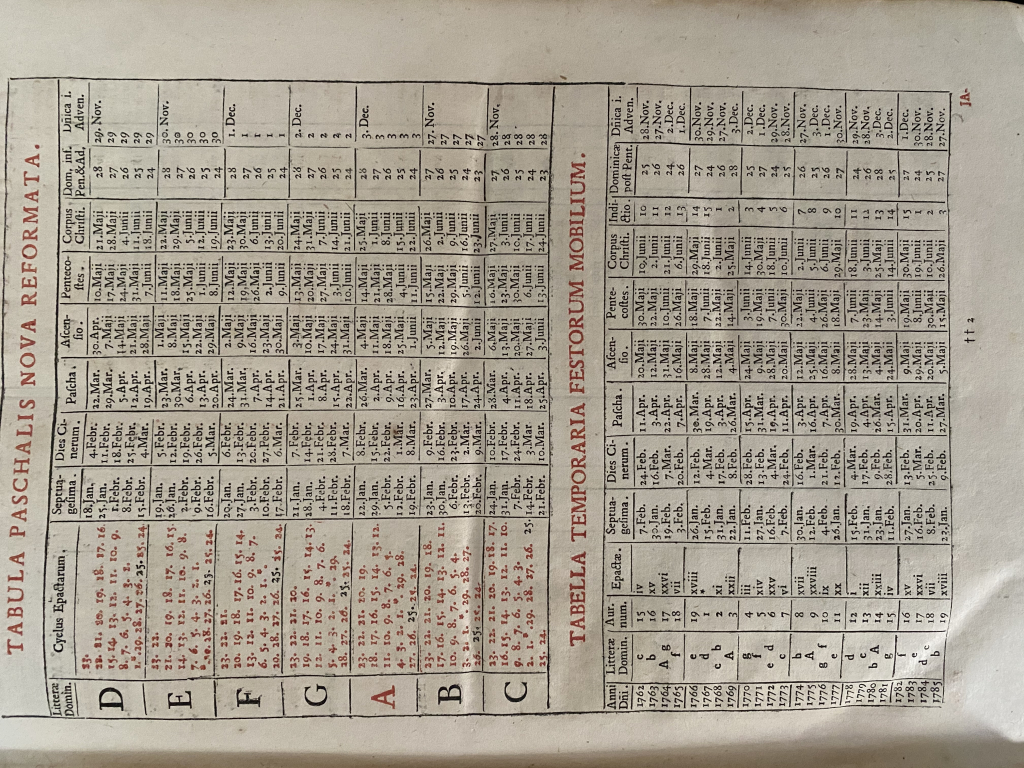 TABULA PASCHALIS NOVA REFORMATA.
Litteræ Domin. Cyclus Epactarum. Septuagesima. Dies Cinerum. Pascha. Ascensio. Pentecostes. Corpus Christi. Dom. inf. Pen.&Ad. Dñica i. Adven.
D 23. 18. Jan. 4. Febr. 22. Mar. 30. Apr. 10. Maji 21. Maji 28 29. Nov.
22. 21. 20. 19. 18. 17. 16. 25. Jan. 11. Febr. 29. Mar. 7. Maji 17. Maji 28. Maji 27 29
15. 14. 13. 12. 11. 10. 9. 1. Febr. 18. Febr. 5. Apr. 14. Maji 24. Maji 4. Junii 26 29
8. 7. 6. 5. 4. 3. 2. 8. Febr. 25. Febr. 12. Apr. 21. Maji 31. Maji 11. Junii 25 29
1. *. 29. 28. 27. 26. 25. 25. 24 15. Febr. 4. Mar. 19. Apr. 28. Maji 7. Junii 18. Junii 24 29
E 23. 22. 19. Jan. 5. Febr. 23. Mar. 1. Maji 11. Maji 22. Maji 28 30. Nov.
21. 20. 19. 18. 17. 16. 15. 26. Jan. 12. Febr. 30. Mar. 8. Maji 18. Maji 29. Maji 27 30
14. 13. 12. 11. 10. 9. 8. 2. Febr. 19. Febr. 6. Apr. 15. Maji 25. Maji 5. Junii 26 30
7. 6. 5. 4. 3. 2. 1. 9. Febr. 26. Febr. 13. Apr. 22. Maji 1. Junii 12. Junii 25 30
*. 29. 28. 27. 26. 25. 25. 24. 16. Febr. 5. Mar. 20. Apr. 29. Maji 8. Junii 19. Junii 24 30
F 23. 22. 21. 20. Jan. 6. Febr. 24. Mar. 2. Maji 12. Maji 23. Maji 28 1. Dec.
20. 19. 18. 17. 16. 15. 14. 27. Jan. 13. Febr. 31. Mar. 9. Maji 19. Maji 30. Maji 27 1
13. 12. 11. 10. 9. 8. 7. 3. Febr. 20. Febr. 7. Apr. 16. Maji 26. Maji 6. Junii 26 1
6. 5. 4. 3. 2. 1. *. 10. Febr. 27. Febr. 14. Apr. 23. Maji 2. Junii 13. Junii 25 1
29. 28. 27. 26. 25. 25. 24 17. Febr. 6. Mar. 21. Apr. 30. Maji 9. Junii 20. Junii 24 1
G 23. 22. 21. 20. 21. Jan. 7. Febr. 25. Mar. 3. Maji 13. Maji 24. Maji 28 2. Dec.
19. 18. 17. 16. 15. 14. 13. 28. Jan. 14. Febr. 1. Apr. 10. Maji 20. Maji 31. Maji 27 2
12. 11. 10. 9. 8. 7. 6. 4. Febr. 21. Febr. 8. Apr. 17. Maji 27. Maji 7. Junii 26 2
5. 4. 3. 2. 1. *. 29. 11. Febr. 28. Febr. 15. Apr. 24. Maji 3. Junii 14. Junii 25 2
28. 27. 26. 25. 25. 24. 18. Febr. 7. Mar. 22. Apr. 31. Maji 10. Junii 21. Junii 24 2
A 23. 22. 21. 20. 19. 22. Jan. 8. Febr. 26. Mar. 4. Maji 14. Maji 25. Maji 28 3. Dec.
18. 17. 16. 15. 14. 13. 12. 29. Jan. 15. Febr. 2. Apr. 11. Maji 21. Maji 1. Junii 27 3
11. 10. 9. 8. 7. 6. 5. 5. Febr. 22. Febr. 9. Apr. 18. Maji 28. Maji 8. Junii 26 3
4. 3. 2. 1. *. 29. 28. 12. Febr. 1. Mar. 16. Apr. 25. Maji 4. Junii 15. Junii 25 3
27. 26. 25. 25. 24. 19. Febr. 8. Mar. 23. Apr. 1. Junii 11. Junii 22. Junii 24 3
B 23. 22. 21. 20. 19. 18. 23. Jan. 9. Febr. 27. Mar. 5. Maji 15. Maji 26. Maji 27 27. Nov.
17. 16. 15. 14. 13. 12. 11. 30. Jan. 16. Febr. 3. Apr. 12. Maji 22. Maji 2. Junii 26 27
10. 9. 8. 7. 6. 5. 4. 6. Febr. 23. Febr. 10. Apr. 19. Maji 29. Maji 9. Junii 25 27
3. 2. 1. *. 29. 28. 27. 13. Febr. 2. Mar. 17. Apr. 26. Maji 5. Junii 16. Junii 24 27
26. 25. 25. 24. 20. Febr. 9. Mar. 24. Apr. 2. Junii 12. Junii 23. Junii 23 27
C 23. 22. 21. 20. 19. 18. 17. 24. Jan. 10. Febr. 28. Mar. 6. Maji 16. Maji 27. Maji 27 28. Nov.
16. 15. 14. 13. 12. 11. 10. 31. Jan. 17. Febr. 4. Apr. 13. Maji 23. Maji 3. Junii 26 28
9. 8. 7. 6. 5. 4. 3. 7. Febr. 24. Febr. 11. Apr. 20. Maji 30. Maji 10. Junii 25 28
2. 1. *. 29. 28. 27. 26. 25. 14. Febr. 3. Mar. 18. Apr. 27. Maji 6. Junii 17. Junii 24 28
25. 24. 21. Febr. 10. Mar. 25. Apr. 3. Junii 13. Junii 24. Junii 23 28
TABELLA TEMPORARIA FESTORUM MOBILIUM.
Anni Dñi. Litteræ Domin. Aur. num. Epactæ. Septuagesima. Dies Cinerum. Pascha. Ascensio. Pentecostes. Corpus Christi. Indictio. Dominicæ post Pent. Dñica i. Adven.
1762 c 15 iv 7. Feb. 24. Feb. 11. Apr. 20. Maji 30. Maji 10. Junii 10 25 28. Nov.
1763 b 16 xv 30. Jan. 16. Feb. 3. Apr. 12. Maji 22. Maji 2. Junii 11 26 27. Nov.
1764 A g 17 xxvi 19. Feb. 7. Mar. 22. Apr. 31. Maji 10. Junii 21. Junii 12 24 2. Dec.
1765 f 18 vii 3. Feb. 20. Feb. 7. Apr. 16. Maji 26. Maji 6. Junii 13 26 1. Dec.
1766 e 19 xviii 26. Jan. 12. Feb. 30. Mar. 8. Maji 18. Maji 29. Maji 14 27 30. Nov.
1767 d 1 * 15. Feb. 4. Mar. 19. Apr. 28. Maji 7. Junii 18. Junii 15 24 29. Nov.
1768 c b 2 xi 31. Jan. 17. Feb. 3. Apr. 12. Maji 22. Maji 2. Junii 1 26 27. Nov.
1769 A 3 xxii 22. Jan. 8. Feb. 26. Mar. 4. Maji 14. Maji 25. Maji 2 28 3. Dec.
1770 g 4 iii 11. Feb. 28. Feb. 15. Apr. 24. Maji 3. Junii 14. Junii 3 25 2. Dec.
1771 f 5 xiv 27. Jan. 13. Feb. 31. Mar. 9. Maji 19. Maji 30. Maji 4 27 1. Dec.
1772 e d 6 xxv 16. Feb. 4. Mar. 19. Apr. 28. Maji 7. Junii 18. Junii 5 24 29. Nov.
1773 c 7 vi 7. Feb. 24. Feb. 11. Apr. 20. Maji 30. Maji 10. Junii 6 25 28. Nov.
1774 b 8 xvii 30. Jan. 16. Feb. 3. Apr. 12. Maji 22. Maji 2. Junii 7 26 27. Nov.
1775 A 9 xxviii 12. Feb. 1. Mar. 16. Apr. 25. Maji 4. Junii 15. Junii 8 25 3. Dec.
1776 g f 10 ix 4. Feb. 21. Feb. 7. Apr. 16. Maji 26. Maji 6. Junii 9 26 1. Dec.
1777 e 11 xx 26. Jan. 12. Feb. 30. Mar. 8. Maji 18. Maji 29. Maji 10 27 30. Nov.
1778 d 12 i 15. Feb. 4. Mar. 19. Apr. 28. Maji 7. Junii 18. Junii 11 24 29. Nov.
1779 c 13 xii 31. Jan. 17. Feb. 4. Apr. 13. Maji 23. Maji 3. Junii 12 26 28. Nov.
1780 b A 14 xxiii 23. Jan. 9. Feb. 26. Mar. 4. Maji 14. Maji 25. Maji 13 28 3. Dec.
1781 g 15 iv 11. Feb. 28. Feb. 15. Apr. 24. Maji 3. Junii 14. Junii 14 25 2. Dec.
1782 f 16 xv 27. Jan. 13. Feb. 31. Mar. 9. Maji 19. Maji 30. Maji 15 27 1. Dec.
1783 e 17 xxvi 16. Feb. 5. Mar. 20. Apr. 29. Maji 8. Junii 19. Junii 1 24 30. Nov.
1784 d c 18 vii 8. Feb. 25. Feb. 11. Apr. 20. Maji 30. Maji 10. Junii 2 25 28. Nov.
1785 b 19 xviii 23. Jan. 9. Feb. 27. Mar. 5. Maji 15. Maji 26. Maji 3 27 27. Nov.
†† 2 JA-